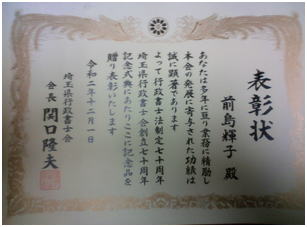 表彰状
前島輝子 殿
あなたは多年に亘り業務に精励し
本会の発展に寄与された功績は
誠に顕著であります
よって行政書士法制定七十周年
埼玉県行政書士会創立七十周年
記念式典にあたりここに記念品を
贈り表彰いたします
令和二年十二月一日
埼玉県行政書士会
会長 関口隆夫